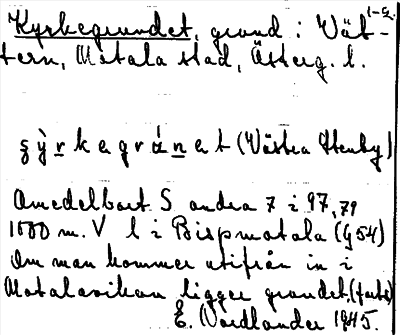 1-2.
Kyrkegrundet, grund i Vät-
tern, Motala stad, Österg. l.
(Västra Stenby)
Omedelbart S andra 7 i 97,79
1000 m. V l i Bispmotala (G54)
Om man kommer utifrån in i
Motalaviken ligger grundet
E. Nordlander 1945.